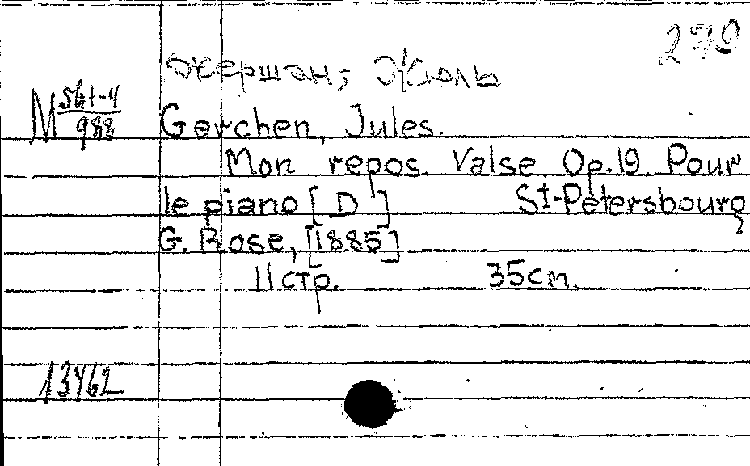 270
Жершэн, Жюль
М 561-4/988
Gerchen, Jules.
Mon repos. Valse. Op.19. Pour
le piano [D] St-Petersbourg
G. Rose, [1885]
11 стр. 35 см.
13462